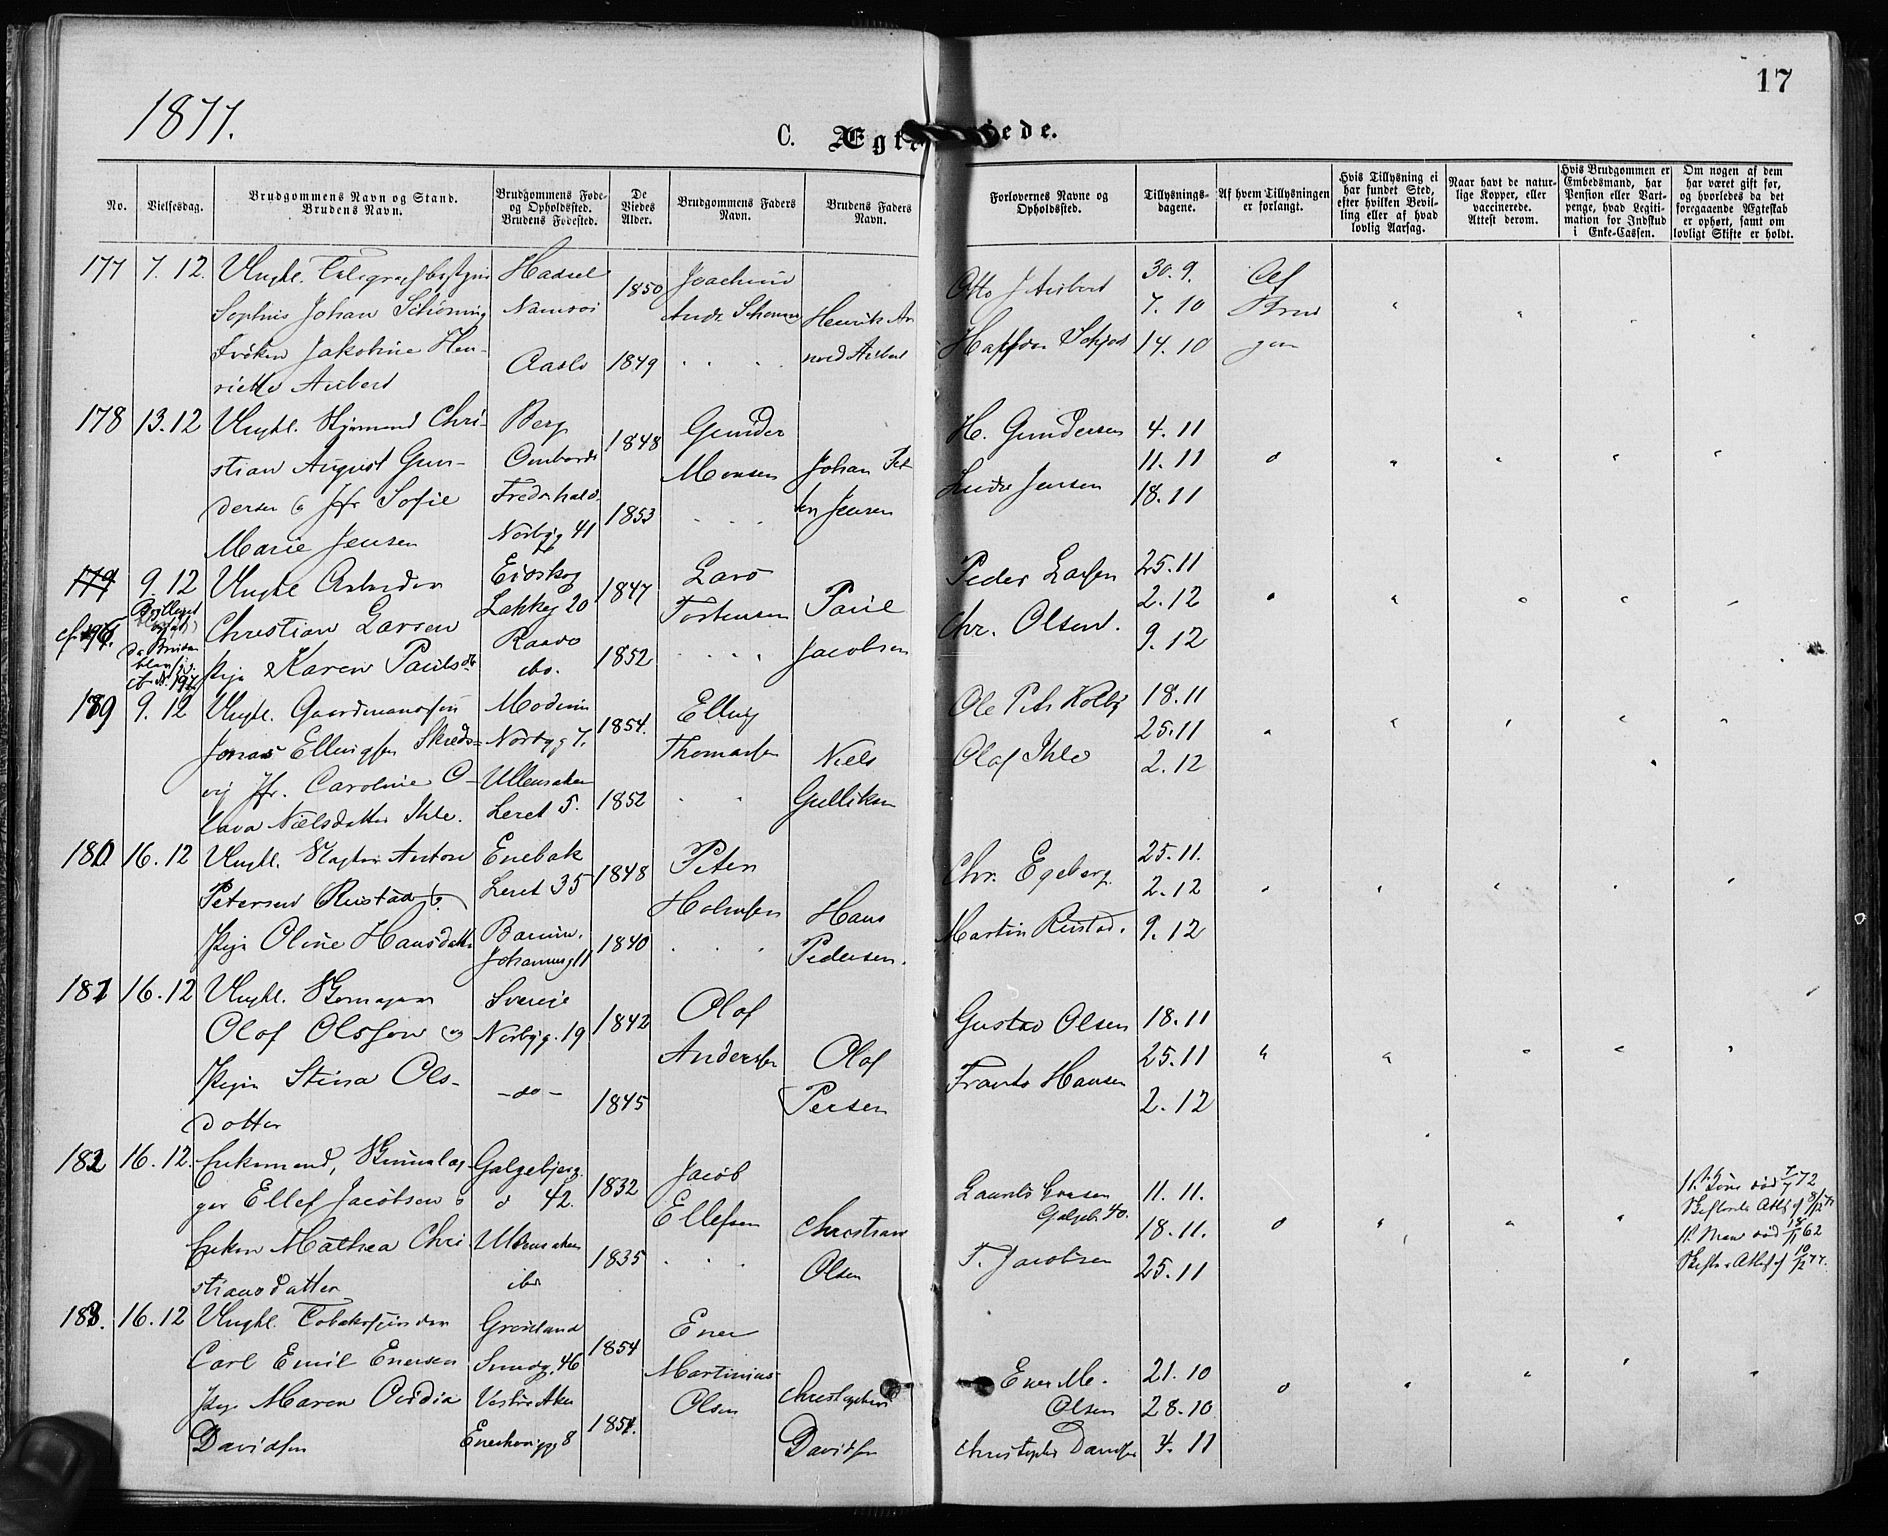 17
1877.
C. Ægt iede.
No.
Vielsesdag.
Brudgommens Navn og Stand.
Brudens Navn.
Brudgommens Føde-
og Opholdssted.
Brudens Fødested.
De
Viedes
Alder.
Brudgommens Faders
Navn.
Brudens Faders
Navn.
Forlovernes Navne og
Opholdssted.
Tillysnings-
dagene.
Af hvem Tillysningen
er forlangt.
Hvis Tillysning ei
har fundet Sted,
efter hvilken Bevil-
ling eller af hvad
lovlig Aarsag.
Naar havt de natur-
lige Kopper, eller
vaccinerede.
Attest derom.
Hvis Brudgommen er
Embedsmand, har
Pension eller Vart-
penge, hvad Legiti-
mation for Indskud
i Enke-Cassen.
Om nogen af dem
har været gift før,
og hvorledes da det
foregaaende Ægteskab
er ophørt, samt om
lovligt Skifte er holdt.
177 7.12. Ungkl.
Sophus Johan Schiønning
Frøken Jakobine Hen-
riette Aubert
Namsos
1850
1849
Joachim
Henrik Ar
nord Aubert
Otto J Aubert
30.9.
7.10
14.10
Af
Brud
gom
178 13.12 Ungkl. Styrmand Chri-
stian August Gun-
dersen & Jfr Sofie
Marie Jensen
Berg
Ombord
Fredr.hald
Norbyg 41
1848
1853
Gunder
Monsen
Johan Pet
ter Jensen
H. Gundersen
Jensen
4.11
11.11
18.11
179 9.12 Ungkl Arbeider
Christian Larsen
Pige & Karen Pauls
Eidskog
Lakkeg 20
ibo.
1847
1852
Lars
Torstensen
Paul
Jacobsen
Peder Larsen
Chr. Olsen.
25.11
2.12
9.12
189 9.12 Ungkl. Gaardmandssøn
Jonas Ellingsen Skreds-
vig Jfr. Caroline O-
lava Nielsdatter Ihle.
Modum
Norbyg 7.
Ullensaker
Leret 5.
1854.
1852
Elling
Thomassen
Niels
Gulliksen
Ole Pet. Kolby
Olaf Ihle
18.11
25.11
2.12
180 16.12 Ungkl. Slagter Anton
Petersen Rustad &
Pige Oline Hansdatter
Enebak
Leret 35
Bærum.
Johannesg 11
1848
1840
Peter
Holmsen
Hans
Pedersen.
Chr. Egeberg
Martin Rustad.
25.11.
2.12
9.12
181 16.12 Ungkl. Skomager
Olof Olsson og
Pige Stina Ols-
dotter
Sverige
Norbyg. 19
- do -
1842
1845
Olof
Andersen
Olof
Persen
Gustav Olsen
Frants Hansen
18.11
25.11
2.12
182 16.12. Enkemand,
ger Ellef Jacobsen &
Enken Mathea Chri
stiansdatter
Galgebjerg
42.
Ullensaker
ibd
1832
1835
Jacob
Ellefsen
Christian
Olsen
Laurits
Galgeb. 40.
T. Jacobsen
11.11.
18.11.
25.11
183. 16.12 Ungkl.
Carl Emil Enersen
Pige Maren Ovidia
Davidsen
Grønland
Smedg. 46
Vestre Aker
Enerhaugg 8
1854
1854.
Ener
Martinius
Olsen
Christopher
Davidsen
Ener M.
Olsen
Christopher Davidsen
21.10
28.10
4.11